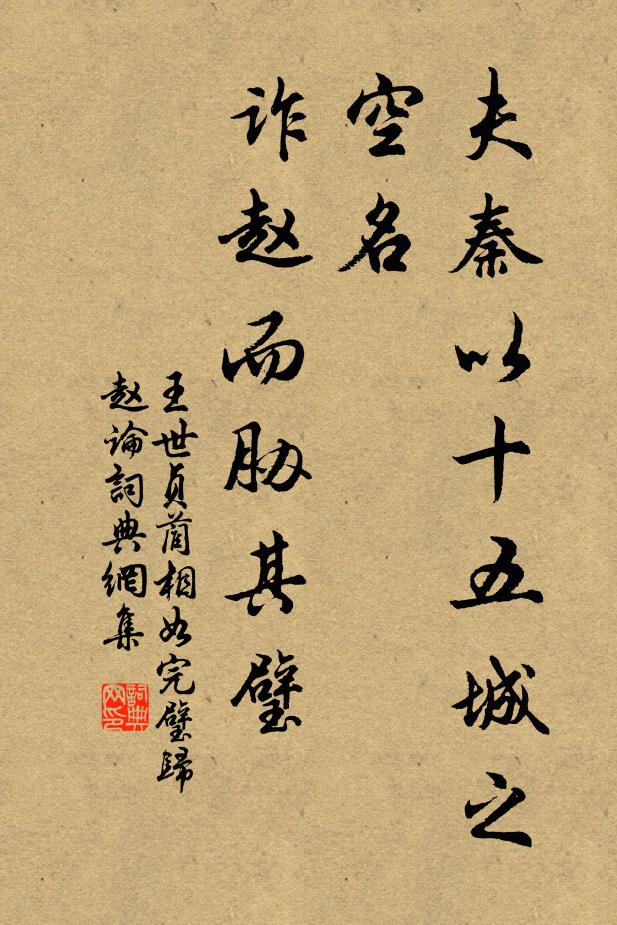 夫秦以十五城之
空名
诈赵而胁其璧
王世贞蔺相如完璧歸
赵论詞典網集
詞典网印